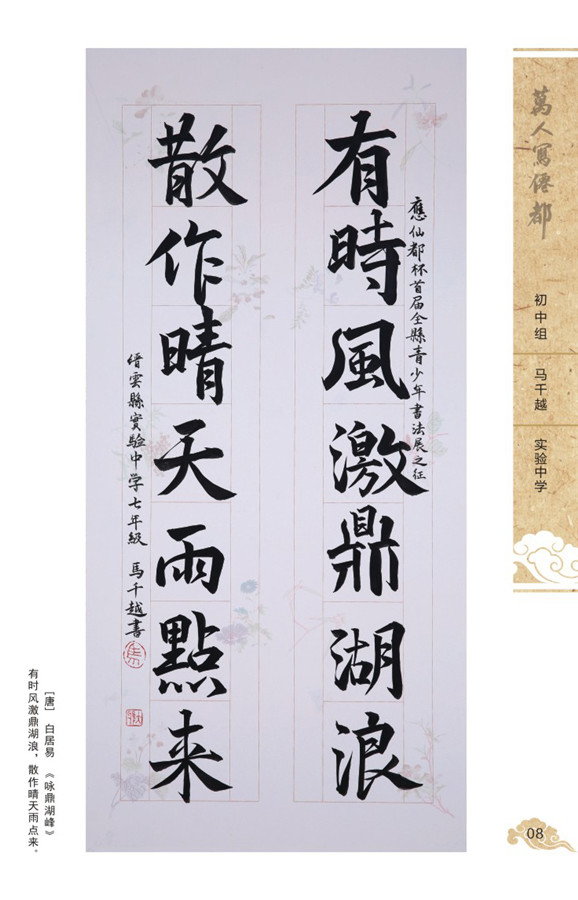 有時風激鼎湖浪
應仙都杯首届全縣青少年書法展之征
散作晴天雨點来
缙雲縣實驗中学七年級 馬千越書
萬人寫僊都
初中组
马千越
实验中学
[唐] 白居易 《咏鼎湖峰》
有时风激鼎湖浪，散作晴天雨点来。
08